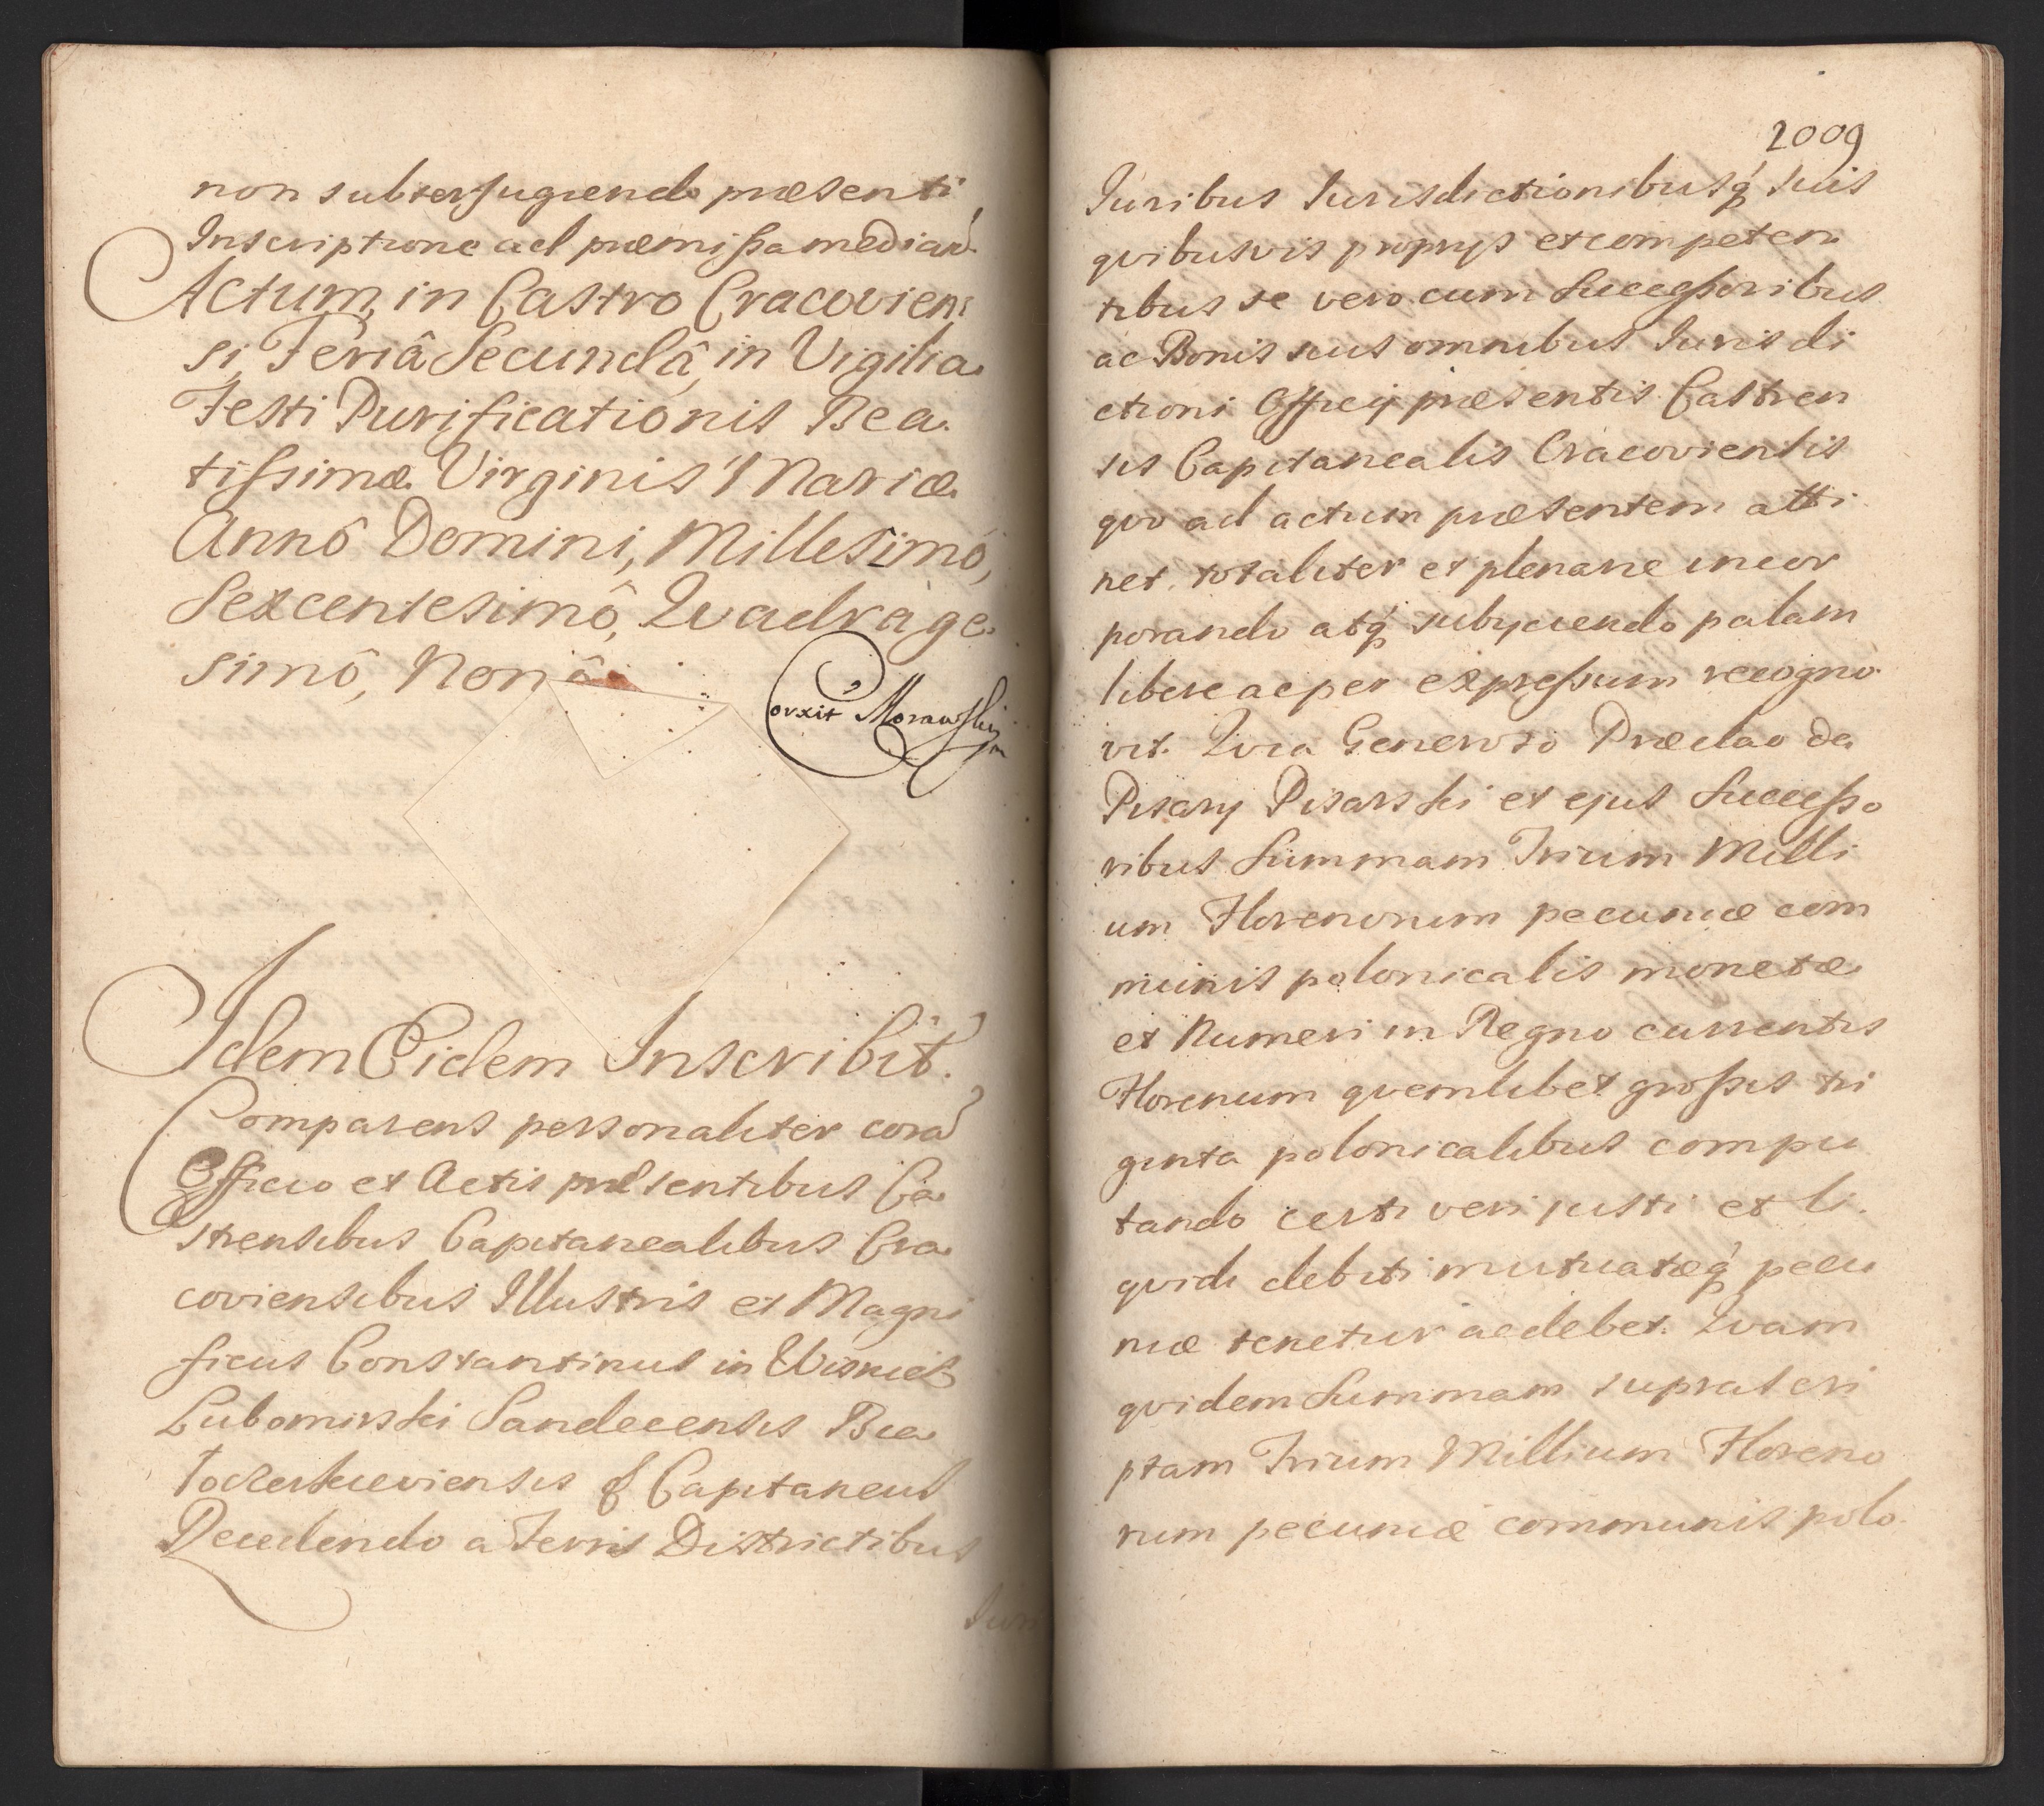 non subterfugiendo præsenti
Inscriptione ad præmissa median̄.
Actum, in Castro Cracovien:
si, Feriâ Secundâ, in Vigilia
Festi Purificationis Bea
tissimæ Virginis Mariæ
Annô Domini, Millesimô,
Sexcentesimô, Quadrage
simô, Nonô
Corxit Morawski
Idem Eidem Inscribit.
Comparens personaliter corā
Officio et Actis præsentibus Ca
strensibus Capitanealibus Cra
coviensibus Illustris et Magni
ficus Constantinus in Wisnicz
Lubomirski Sandecensis Bia
locerkieviensis Capitaneus
Recedendo a Terris Districtibus
Juri
2009
Juribus Jurisdictionibusq́ suis
qvibusvis proprijs et competen
tibus se vero cum Successoribus
ac Bonis suis omnibus Jurisdi
ctioni Officij præsentis Castren
sis Capitanealis Cracoviensis
qvo ad actum præsentem atti
net totaliter et plenarie incor
porando atq́ subijciendo palam
libere ac per expressum recogno
vit. Qvia Generoso Præclao de
Pisary Pisarski et ejus Successo
ribus Summam Trium Milli
um Florenorum pecuniæ com
munis polonicalis monetæ
et Numeri in Regno currentis
Florenum qvemlibet grossis tri
ginta polonicalibus compu
tando certi veri justi et li
qvidi debiti mutuatæq́ pecu
niæ tenetur ac debet. Qvam
qvidem Summam supra scri
ptam Trium Millium Floreno
rum pecuniæ communis polo